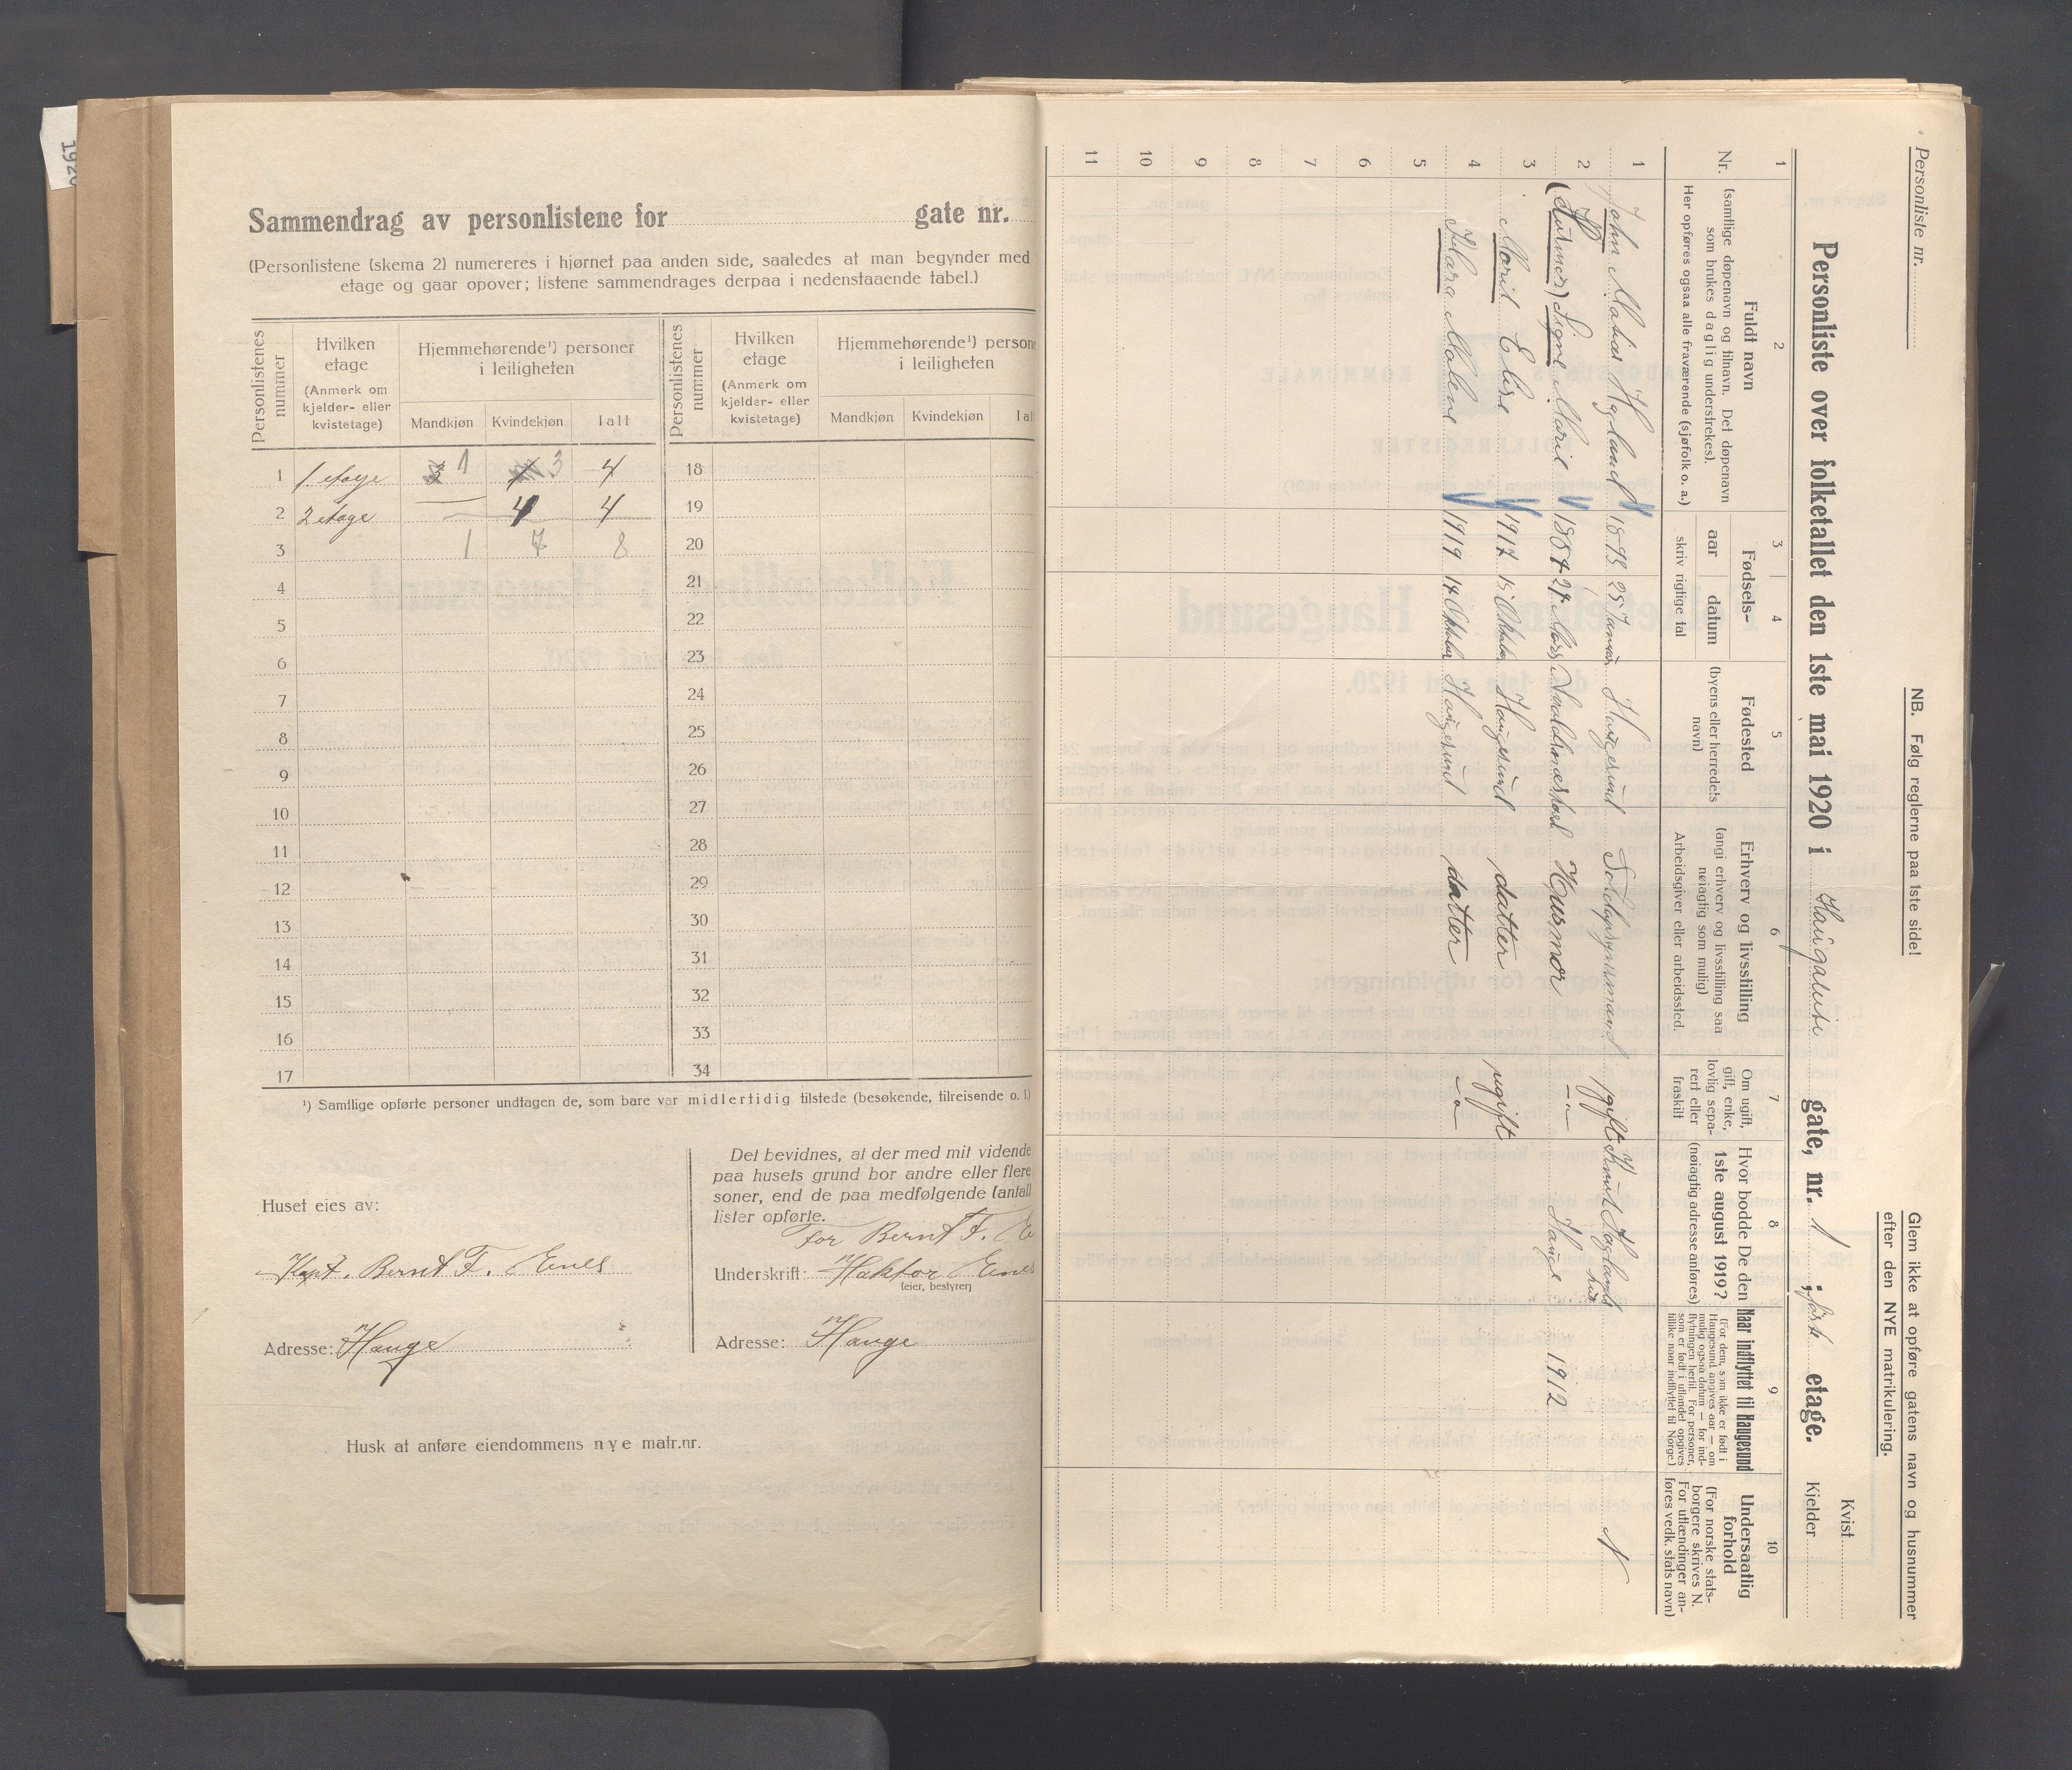 1920
Sammendrag av personlistene for gate nr.
(Personlistene (skema 2) numereres i hjørnet paa anden side, saaledes at man begynder med
etage og gaar opover; listene sammendrages derpaa i nedenstaaende tabel.)
Personlistenes nummer
Hvilken etage
(Anmerk om kjelder- eller kvistetage)
Hjemmehørende¹) personer i leiligheten
Mandkjøn Kvindekjøn Ialt
Personlistenes nummer
Hvilken etage
(Anmerk om kjelder- eller kvistetage)
Hjemmehørende¹) person
i leiligheten
Mandkjøn Kvindekjøn Ial
1 1 etage 1 3 4 18
2 2 etage — 4 4 19
3 1 7 8 20
4 21
5 22
6 23
7 24
8 25
9 26
10 27
11 28
12 29
13 30
14 31
15 32
16 33
17 34
¹) Samtlige opførte personer undtagen de, som bare var midlertidig tilstede (besøkende, tilreisende o. l.)
Huset eies av:
Kapt. Bernt F. Enes
Adresse: Hauge
Det bevidnes, at der med mit vidende
paa husets grund bor andre eller flere
soner, end de paa medfølgende (antal)
lister opførte.
For Bernt F. E
Underskrift: Haktor Enes
(eier, bestyrer)
Adresse: Hauge
Husk at anføre eiendommens nye matr.nr.
Personliste nr.
NB. Følg reglerne paa 1ste side!
Glem ikke at opføre gatens navn og husnummer
efter den NYE matrikulering.
Kvist
Personliste over folketallet den 1ste mai 1920 i Haugaleite gate, nr. 1 ; første etage.
Kjelder
1 2 3 4 5 6 7 8 9 10
Nr.
Fuldt navn
(samtlige døpenavn og tilnavn. Det døpenavn
som brukes daglig understrekes).
Her opføres ogsaa alle fraværende (sjøfolk o. a.)
Fødsels-
aar datum
skriv rigtige tal
Fødested
(byens eller herredets
navn)
Erhverv og livsstilling
(angi erhverv og livsstilling saa
nøiagtig som mulig)
Arbeidsgiver eller arbeidssted.
Om ugift,
gift, enke,
lovlig sepa-
rert eller
fraskilt
Hvor bodde De den
1ste august 1919?
(nøiagtig adresse anføres)
Naar indflyttet til Haugesund
(For dem, som ikke er født i
Haugesund angives aar — om
mulig ogsaa datum — for ind-
flytningen hertil. For personer,
som er født i utlandet opgives
tillike naar indflyttet til Norge.)
Undersaatlig
forhold
(For norske stats-
borgere skrives N.
For utlændinger an-
føres vedk. stats navn)
1 John Matias Høgland 1878 25 Januar Haugesund gift Knut Høglands hus N
2 Signe Marie 1887 27 Mars Husmor — " — Hauge 1912
3 Marit Elise 1917 15 Oktober Haugesund datter ugift
4 Klara Malene 1919 14 Oktober Haugesund datter — " —
5
6
7
8
9
10
11